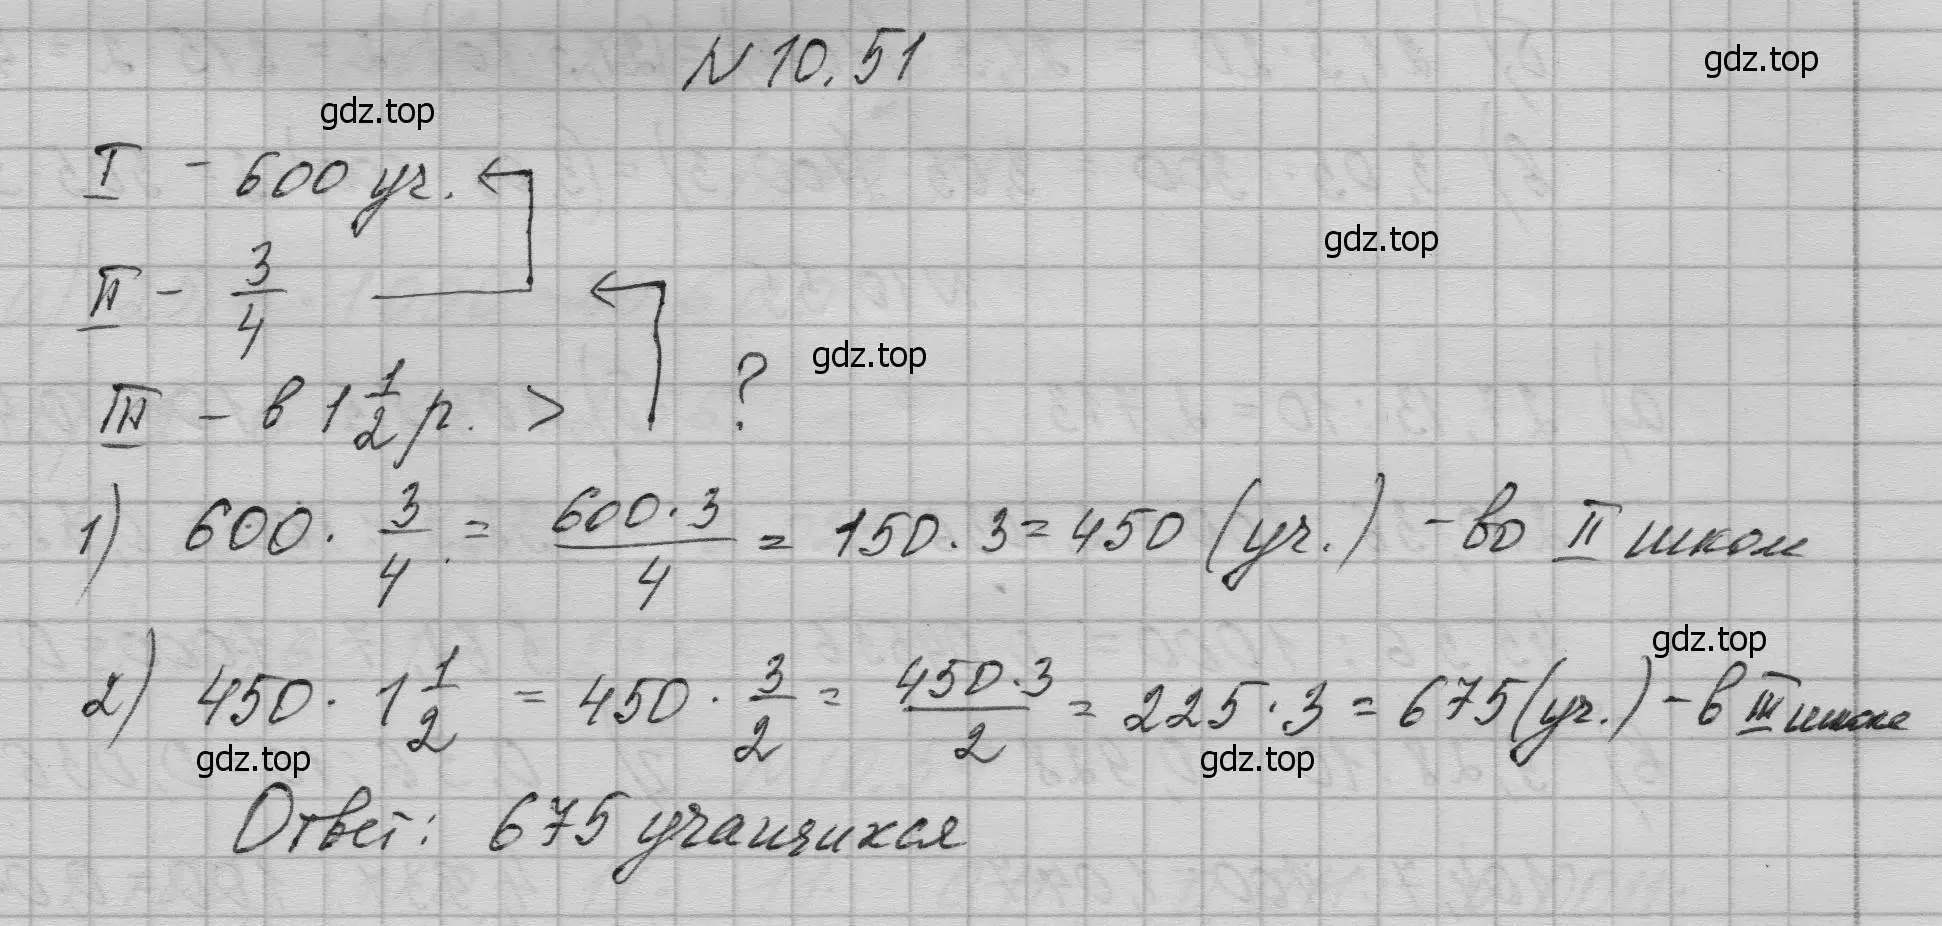 N 10.51
gdz.top
gdz.top
I - 600 уч.
gdz.top
II - 3/4
III - в 1 1/2 р. > ?
gdz.top
1) 600 · 3/4 = 600·3/4 = 150 · 3 = 450 (уч.) - во II школ
gdz.top
2) 450 · 1 1/2 = 450 · 3/2 = 450·3/2 = 225 · 3 = 675 (уч.) - в III школе
gdz.top
gdz.top
Ответ: 675 учащихся